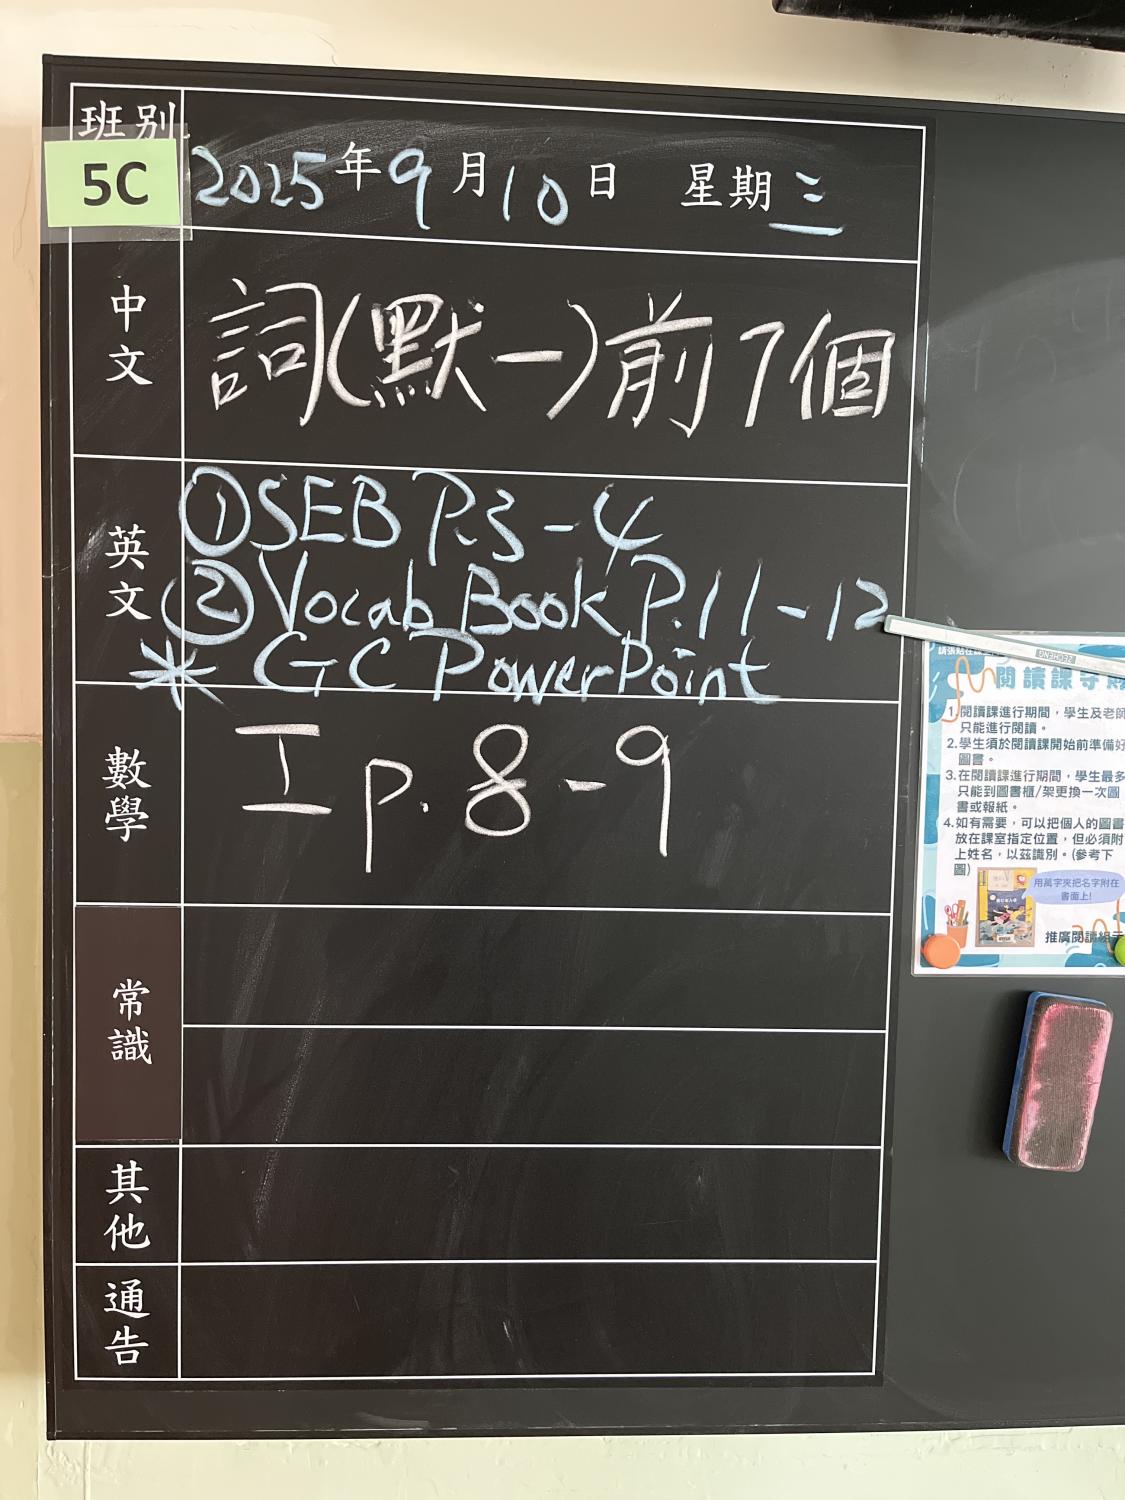 班別
5C
2025年9月10日 星期三
中文
詞(默一)前7個
英文
①SEB P.3-4
②Vocab Book P.11-12
* GC PowerPoint
數學
工 p.8-9
常識
其他
通告
閱讀課守則
1.閱讀課進行期間，學生及老師
只能進行閱讀。
2.學生須於閱讀課開始前準備好
圖書。
3.在閱讀課進行期間，學生最多
只能到圖書櫃/架更換一次圖
書或報紙。
4.如有需要，可以把個人的圖書
放在課室指定位置，但必須附
上姓名，以茲識別。(參考下
圖)
用萬字夾把名字附在
書面上!
推廣閱讀組